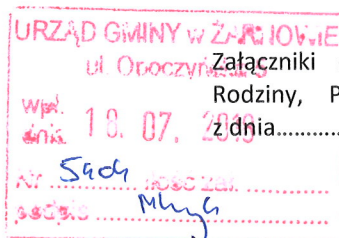 URZĄD GMINY w ŻARNOWIE
ul. Opoczyńska 5
Załączniki
Rodziny, P
z dnia............
wpł.
dnia 18. 07. 2018
Nr ........ Ilość zał. ............
podpis ............